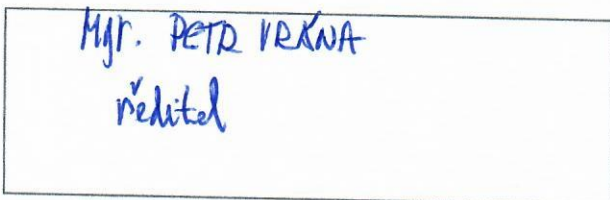 Mgr. PETR VRÁNA
ředitel